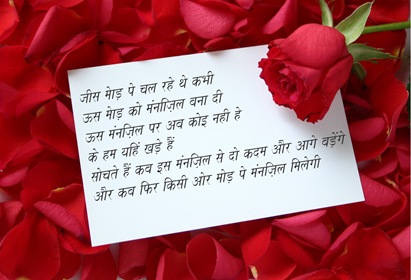 जीस मेाड़ पे चल रहे थे कभी
ऊस मेाड़ को मंनाज़िल वना दी
ऊस मंनज़िल पर अव कोइ नही हे
के हम यहिं खड़े हैं
सोचते हैं कव इस मंनज़िल से दो कदम और आगे वड़ेंगे
और कव फिर किसी ओर मोड़ पे मंनज़िल मिलेगी